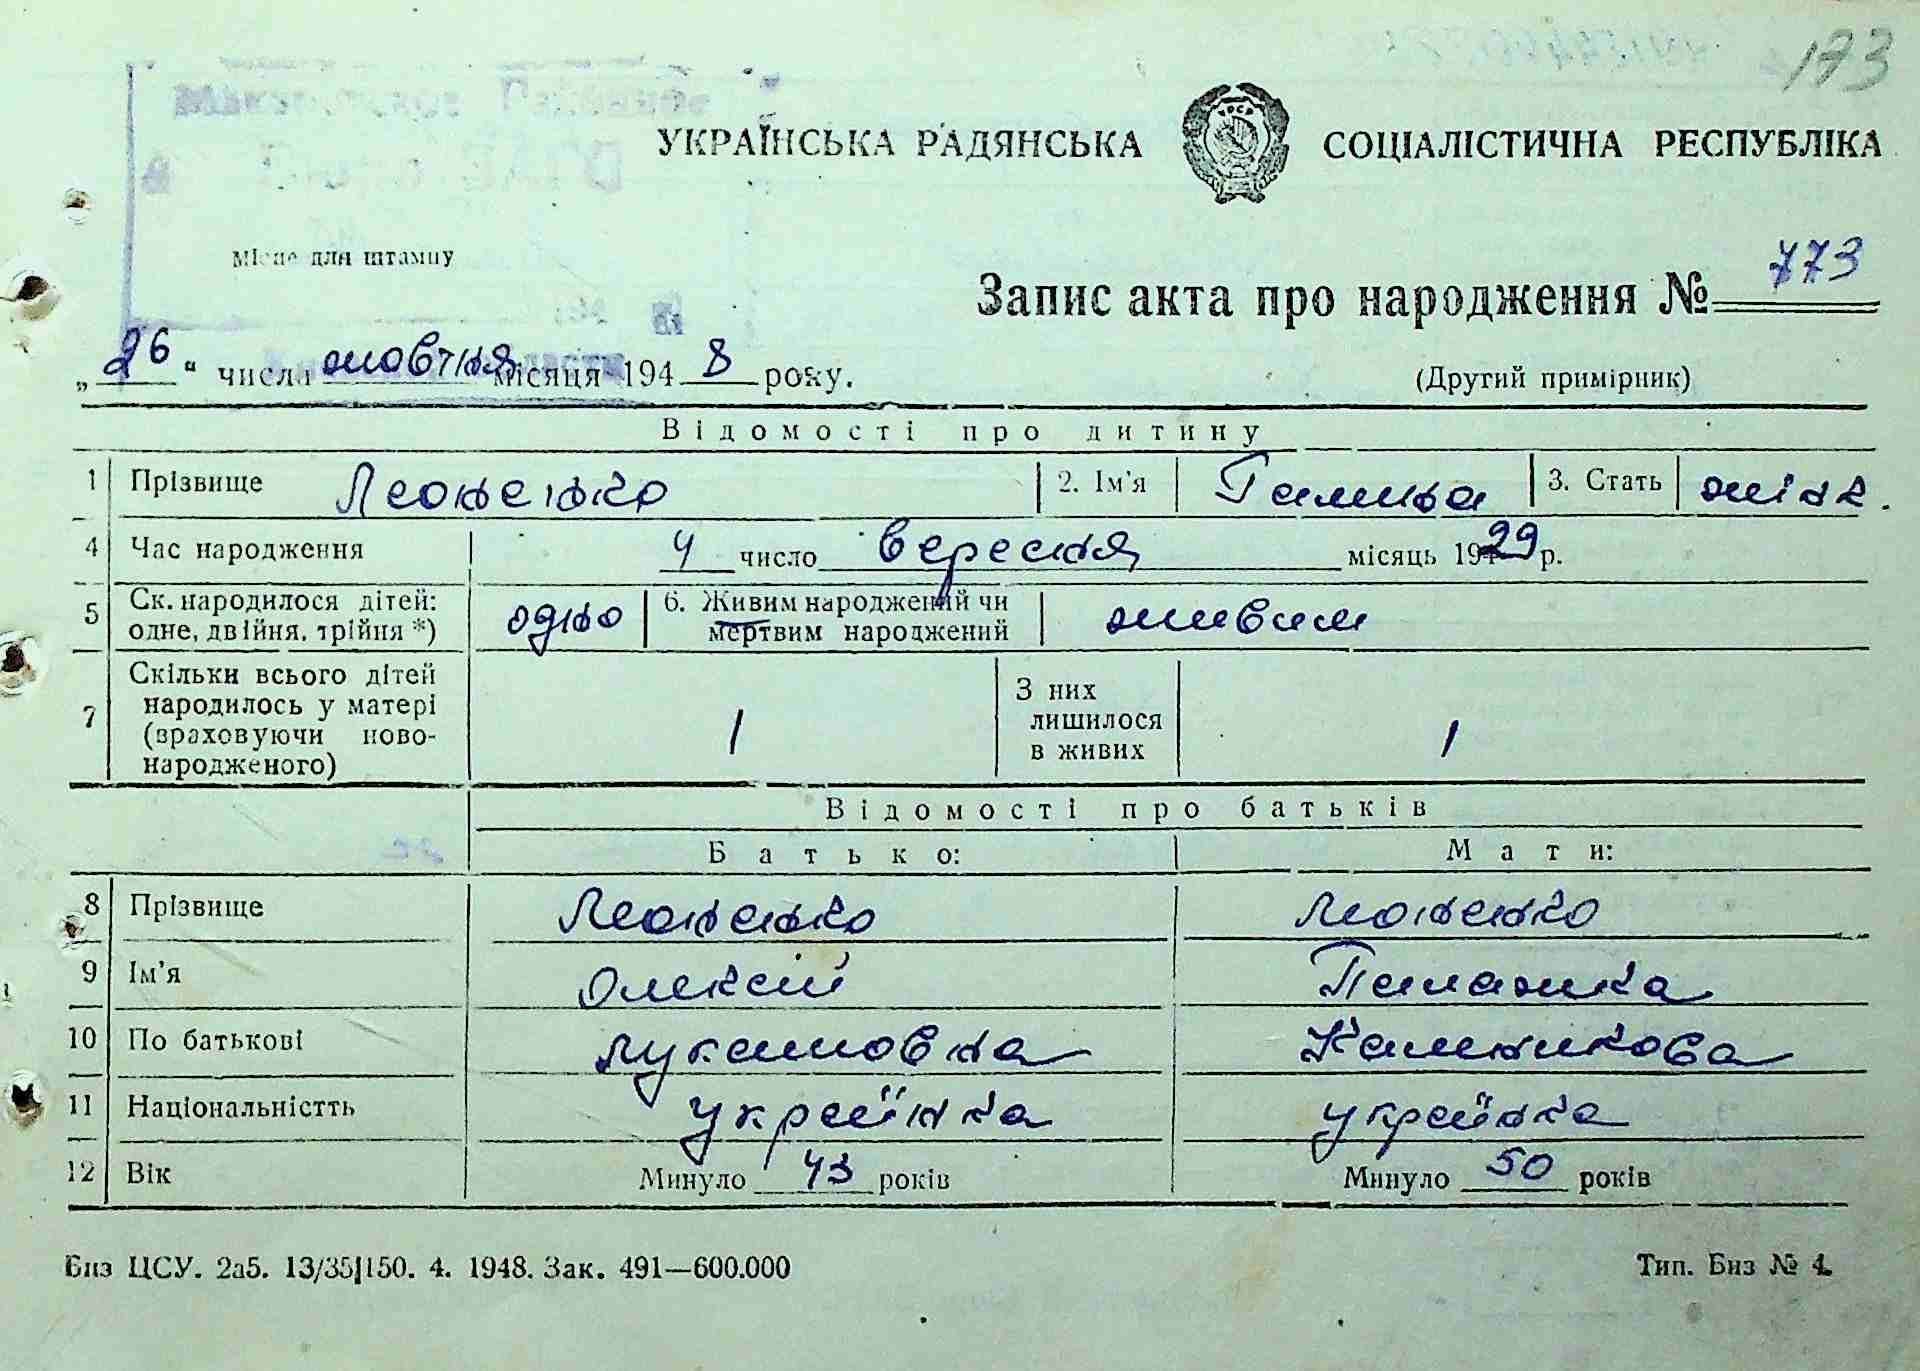 173
УКРАЇНСЬКА РАДЯНСЬКА СОЦІАЛІСТИЧНА РЕСПУБЛІКА
Місце для штампу
Запис акта про народження № 773
„26“ числа жовтня місяця 1948 року.
(Другий примірник)
Відомості про дитину
1 Прізвище Леоненко 2. Ім'я Галина 3. Стать жіноч.
4 Час народження 4 число вересня місяць 1929 р.
5 Ск. народилося дітей: одне, двійня, трійня *) одно 6. Живим народжений чи мертвим народжений живим
7 Скільки всього дітей народилось у матері (враховуючи новонародженого) 1 З них лишилося в живих 1
Відомості про батьків
Батько: Мати:
8 Прізвище Леоненко Леоненко
9 Ім'я Олексій Палажка
10 По батькові
11 Національністть українка українка
12 Вік Минуло 43 років Минуло 50 років
Биз ЦСУ. 2а5. 13/35|150. 4. 1948. Зак. 491—600.000 Тип. Биз № 4.